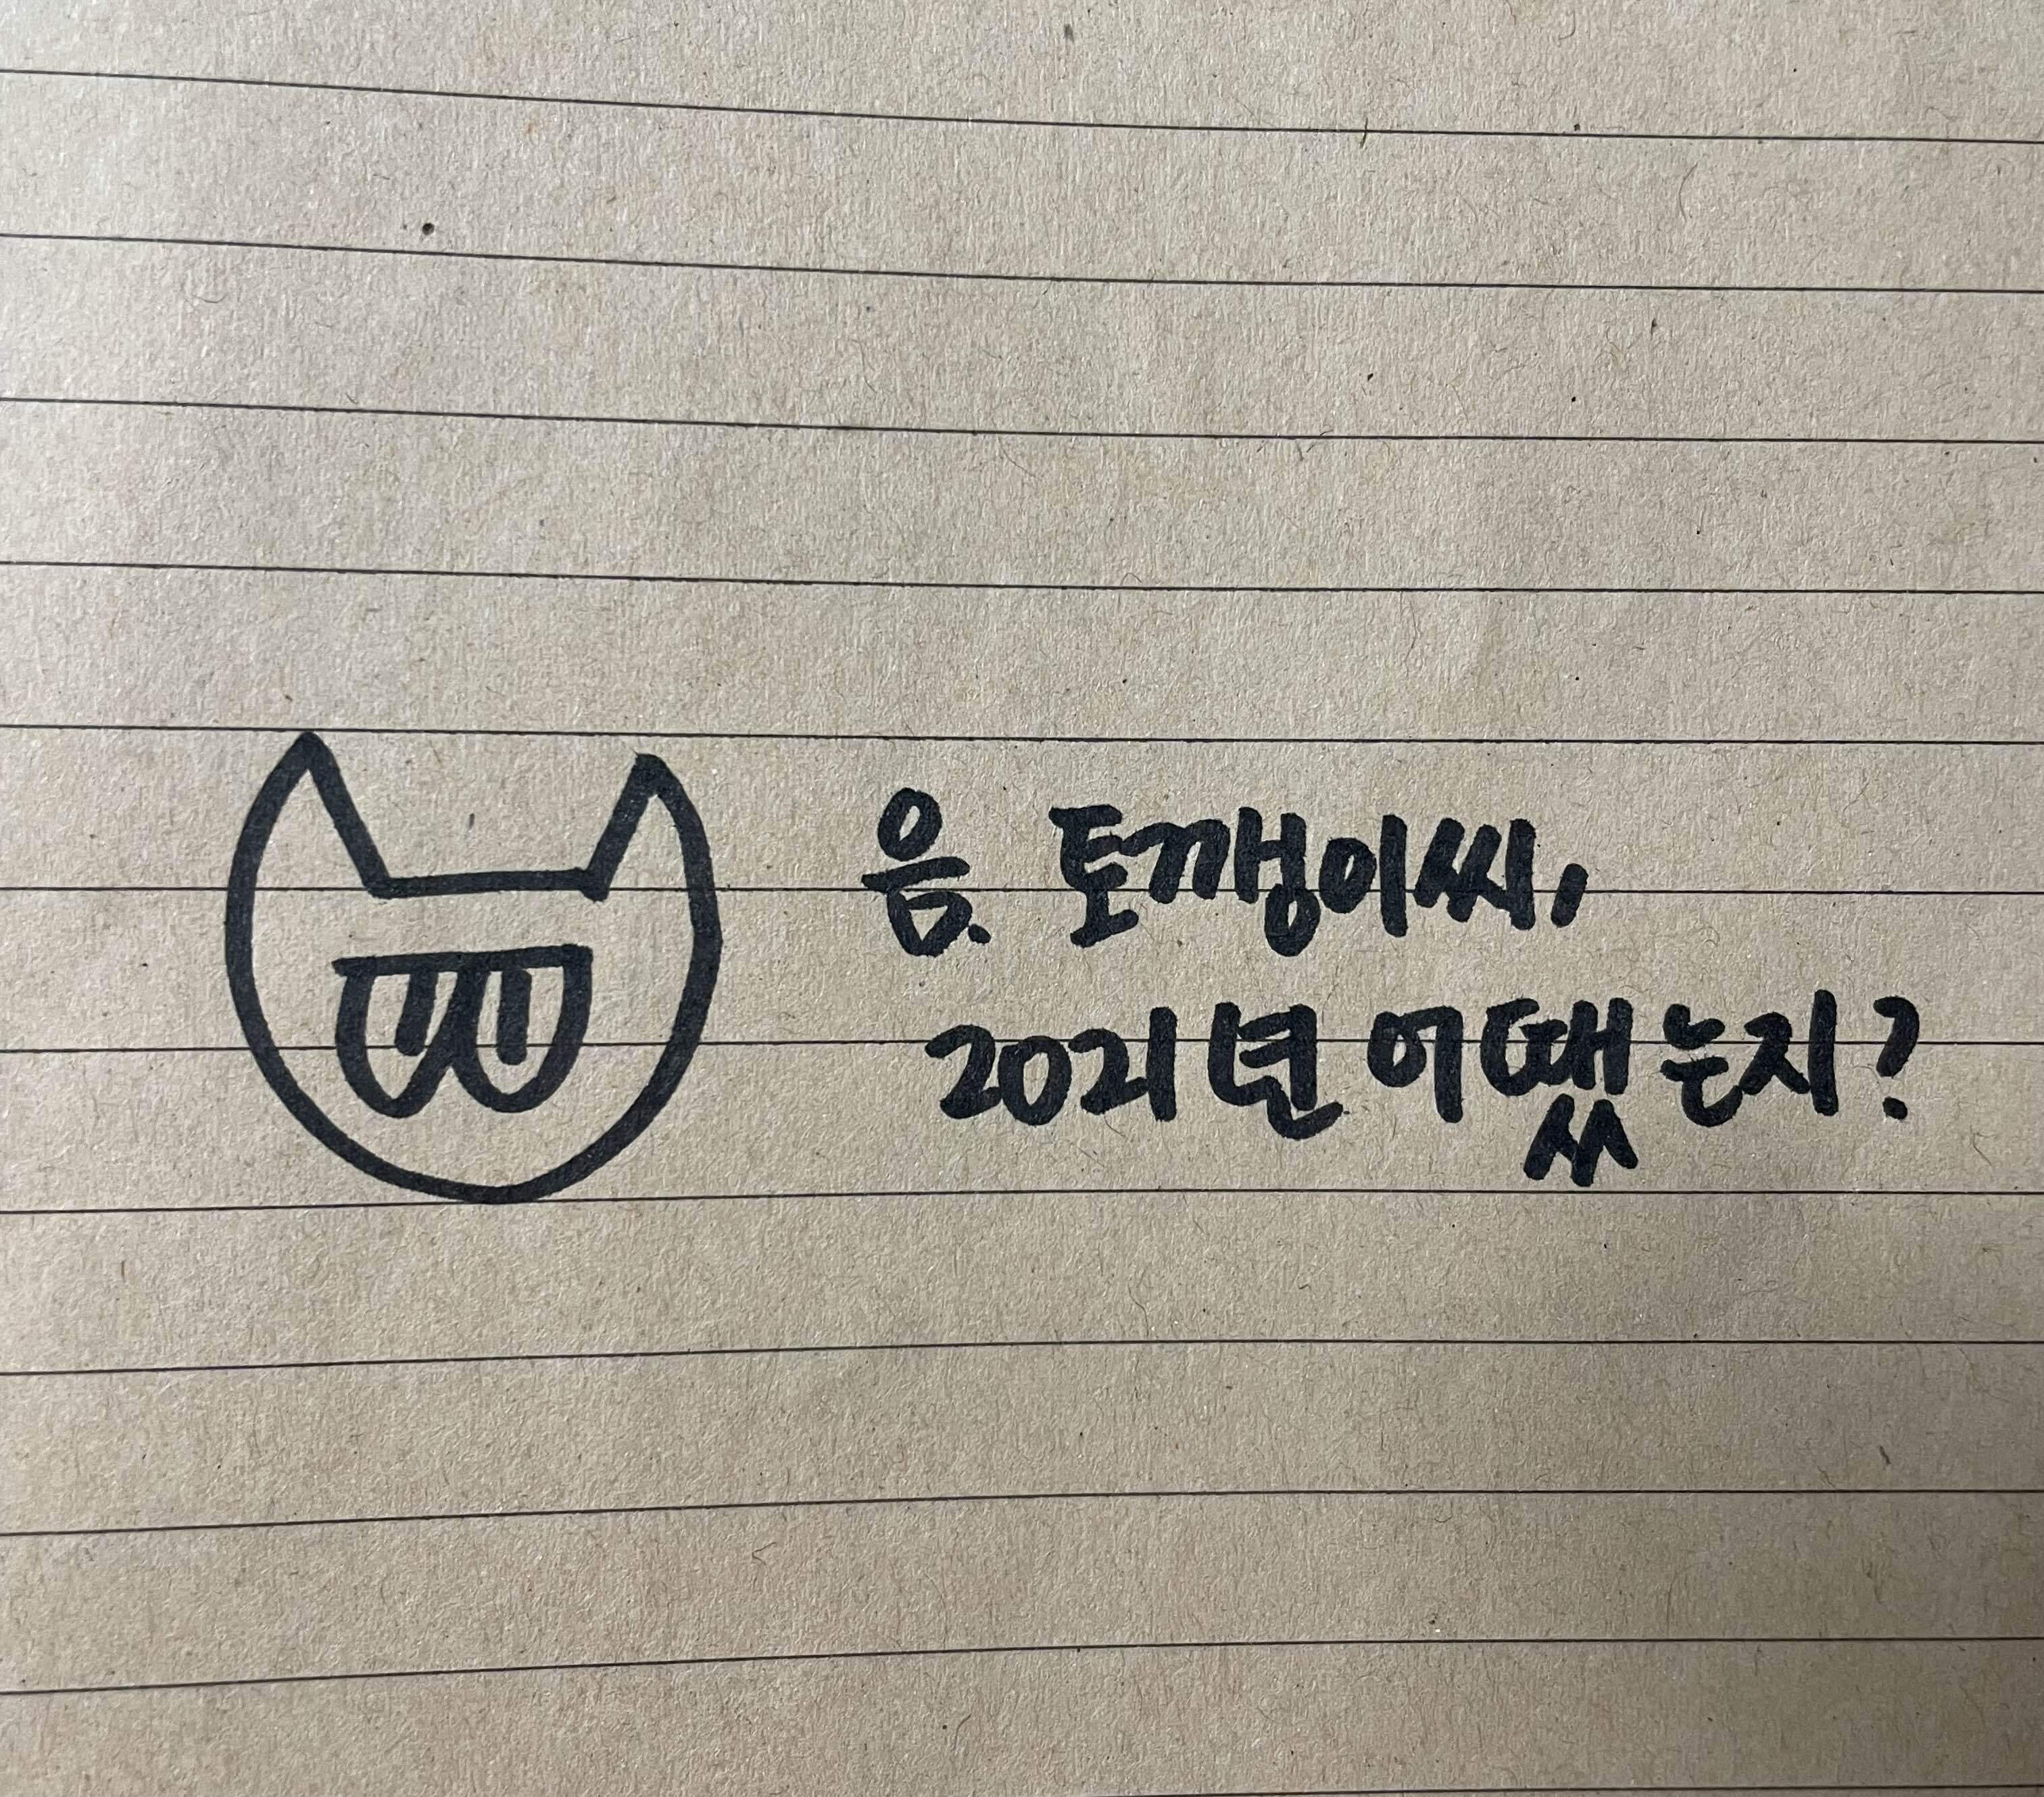 음. 토깽이씨,
2021년 어땠는지?